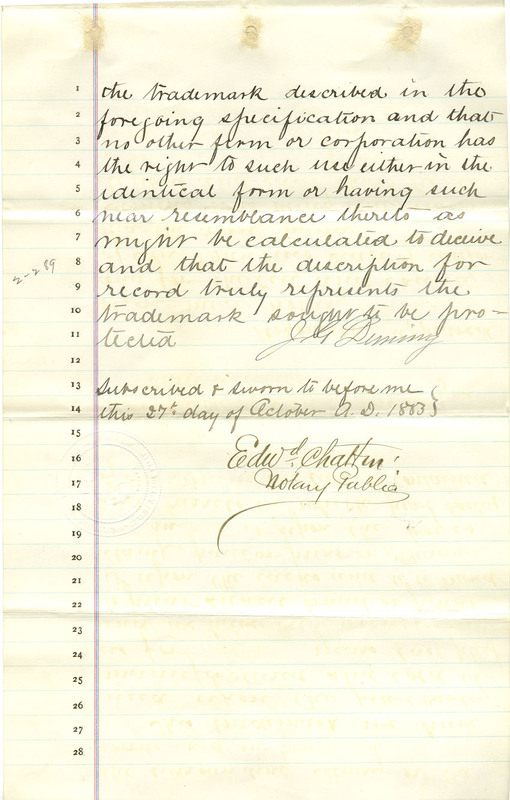 1 the trademark described in the
2 foregoing specification and that
3 no other firm or corporation has
4 the right to such use either in the
5 identical form or having such
6 near resemblance thereto as
7 might be calculated to deceive
8 and that the description for
9 record truly represents the
10 trademark sought to be pro-
11 tected
J. G. Deming
12
13 Subscribed & sworn to before me
14 this 27th day of October A. D. 1883
15
16 Edwd. Chatten
17 Notary Public
18
19
20
21
22
23
24
25
26
27
28
2-289